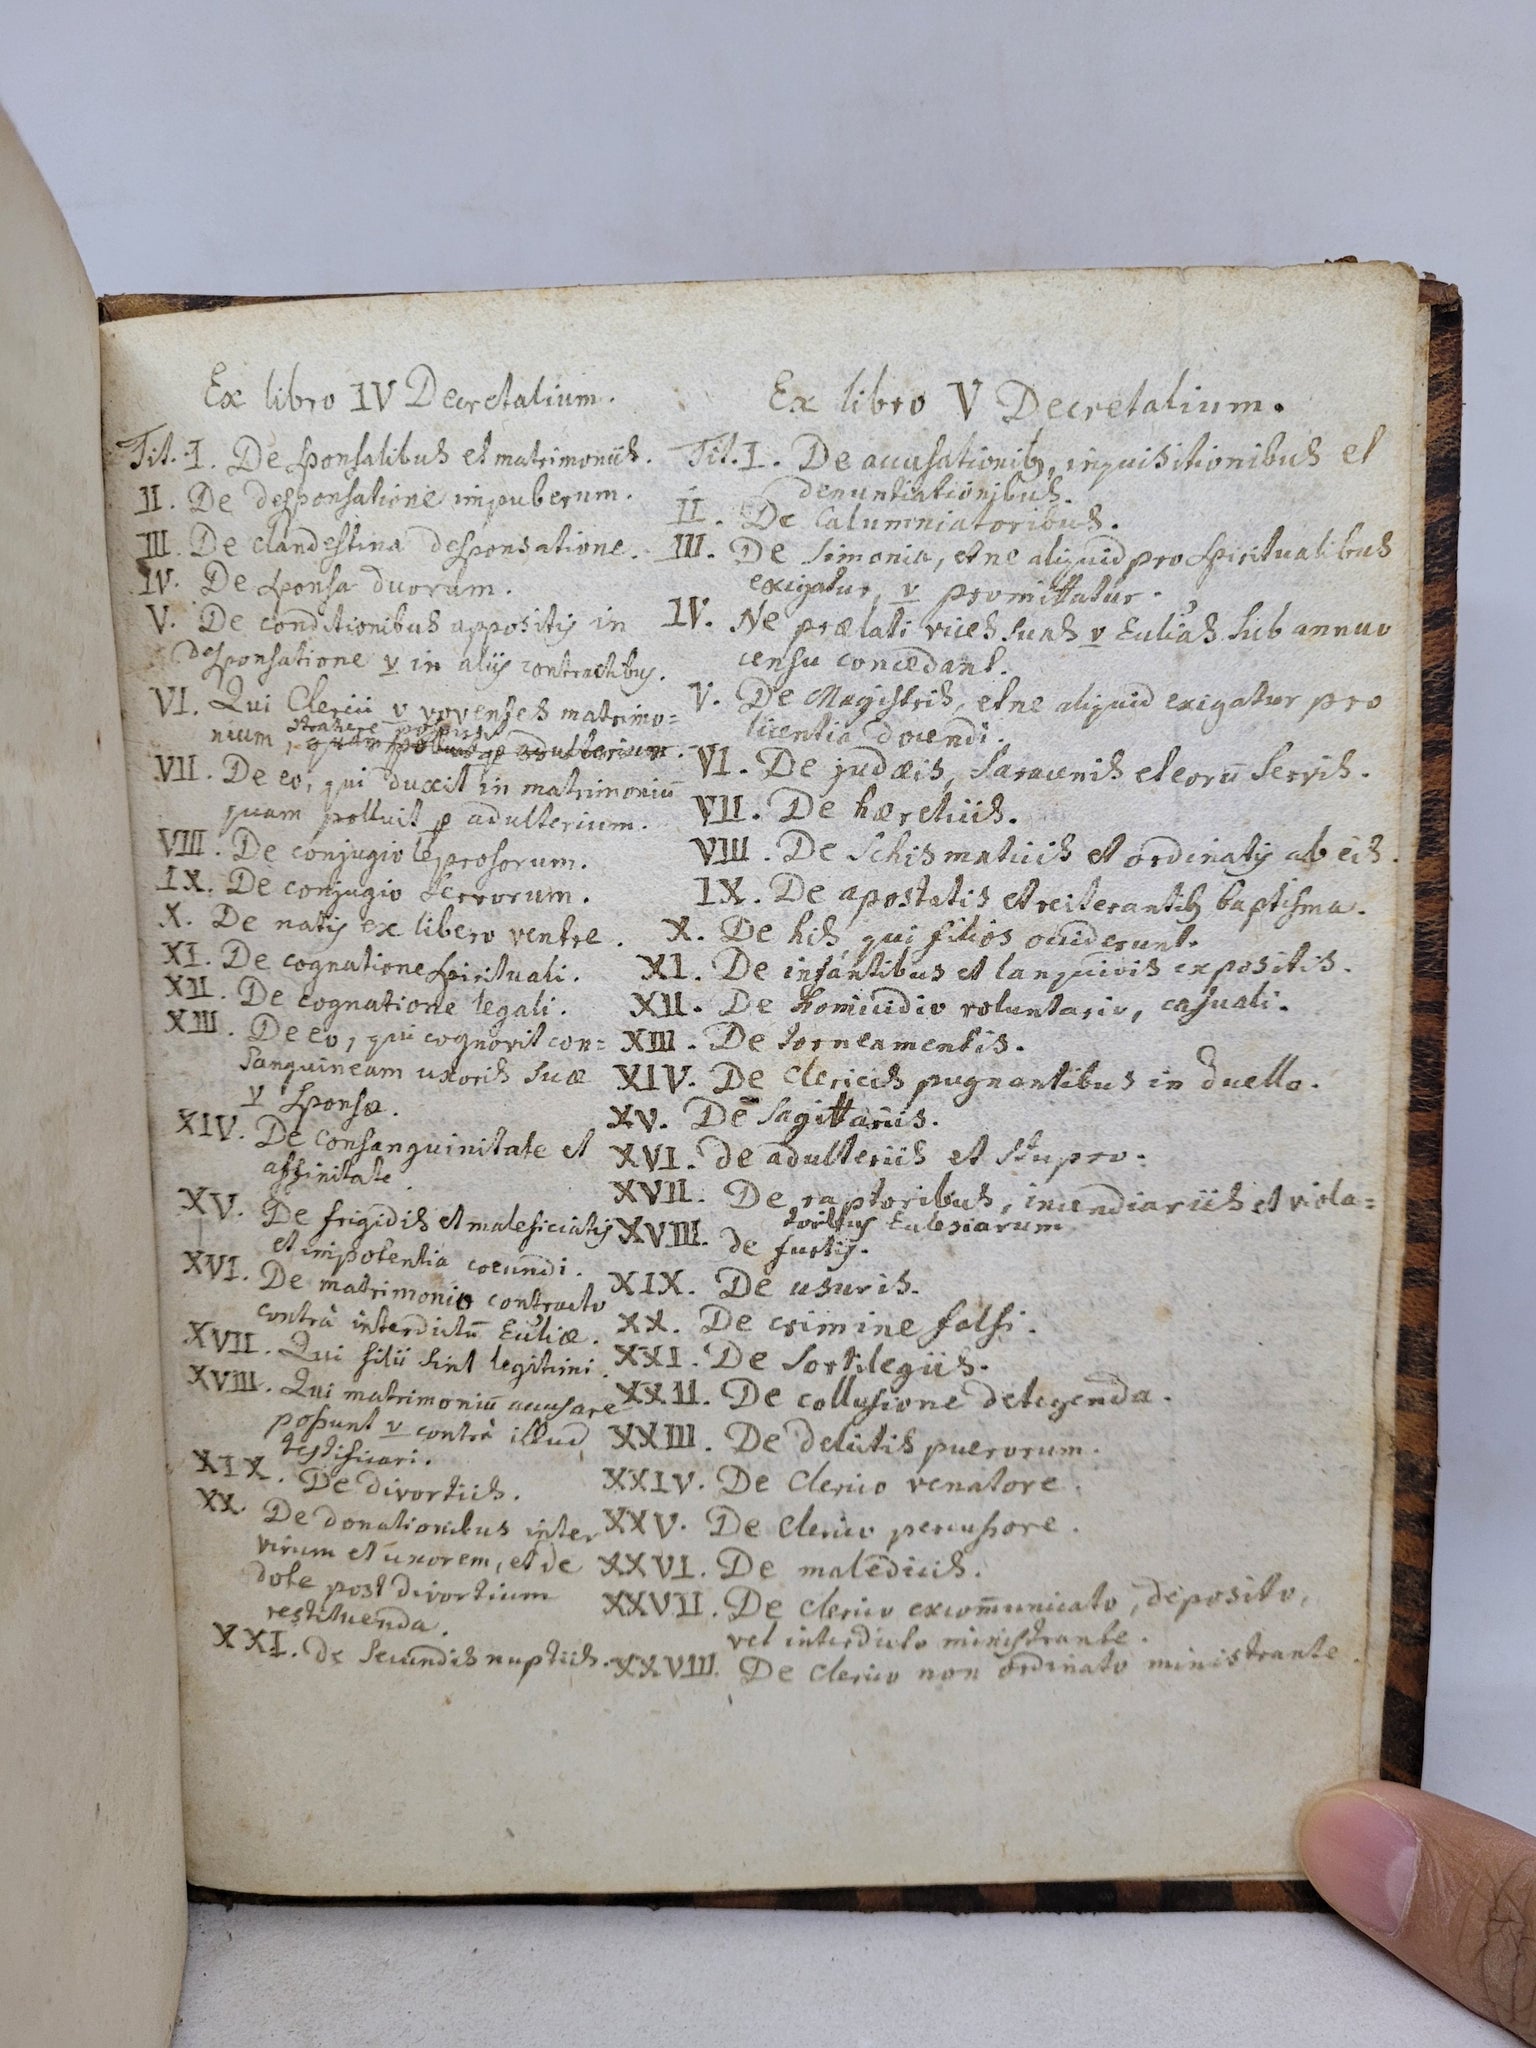 Ex libro IV Decretalium.
Tit. I. De sponsalibus et matrimoniis.
II. De desponsatione impuberum.
III. De clandestina desponsatione.
IV. De sponsa duorum.
V. De conditionibus appositis in
desponsatione v in aliis contractibus.
VI. Qui Clerici v voventes matrimo=
nium
VII. De eo, qui duxit in matrimoniū
quam polluit p adulterium.
VIII. De conjugio leprosorum.
IX. De conjugio servorum.
X. De natis ex libero ventre.
XI. De cognatione spirituali.
XII. De cognatione legali.
XIII. De eo, qui cognovit con=
sanguineam uxoris suæ
v sponsæ.
XIV. De consanguinitate et
affinitate.
XV. De frigidis et maleficiatis
et impotentia coeundi.
XVI. De matrimonio contracto
contrà interdictū Ecc̄liæ.
XVII. Qui filii sint legitimi.
XVIII. Qui matrimoniū accusare
possunt v contrà illud
testificari.
XIX. De divortiis.
XX. De donationibus inter
virum et uxorem, et de
dote post divortium
restituenda.
XXI. De secundis nuptiis.
Ex libro V Decretalium.
Tit. I. De accusationib9, inquisitionibus et
denuntiationibus.
II. De Calumniatoribus.
III. De simonia, et ne aliquid pro spiritualibus
exigatur, v promittatur.
IV. Ne prælati vices suas v Ecc̄lias sub annuo
censu concedant.
V. De Magistris, et ne aliquid exigatur pro
licentia docendi.
VI. De judæis, saracenis et eorū servis.
VII. De hæreticis.
VIII. De Schismaticis et ordinatis ab eis.
IX. De apostatis et reiterantib9 baptisma.
X. De his qui filios occiderunt.
XI. De infantibus et languidis expositis.
XII. De homicidio voluntario, casuali.
XIII. De torneamentis.
XIV. De clericis pugnantibus in duello.
XV. De sagittariis.
XVI. de adulteriis et stupro.
XVII. De raptoribus, incendiariis et viola=
toribus Ecclesiarum
XVIII. de furtis.
XIX. De usuris.
XX. De crimine falsi.
XXI. De sortilegiis.
XXII. De collusione detegenda.
XXIII. De delictis puerorum.
XXIV. De Clerico venatore.
XXV. De Clerico percussore.
XXVI. De maledicis.
XXVII. De clerico excom̄unicato, deposito,
vel interdicto ministrante.
XXVIII. De Clerico non ordinato ministrante.